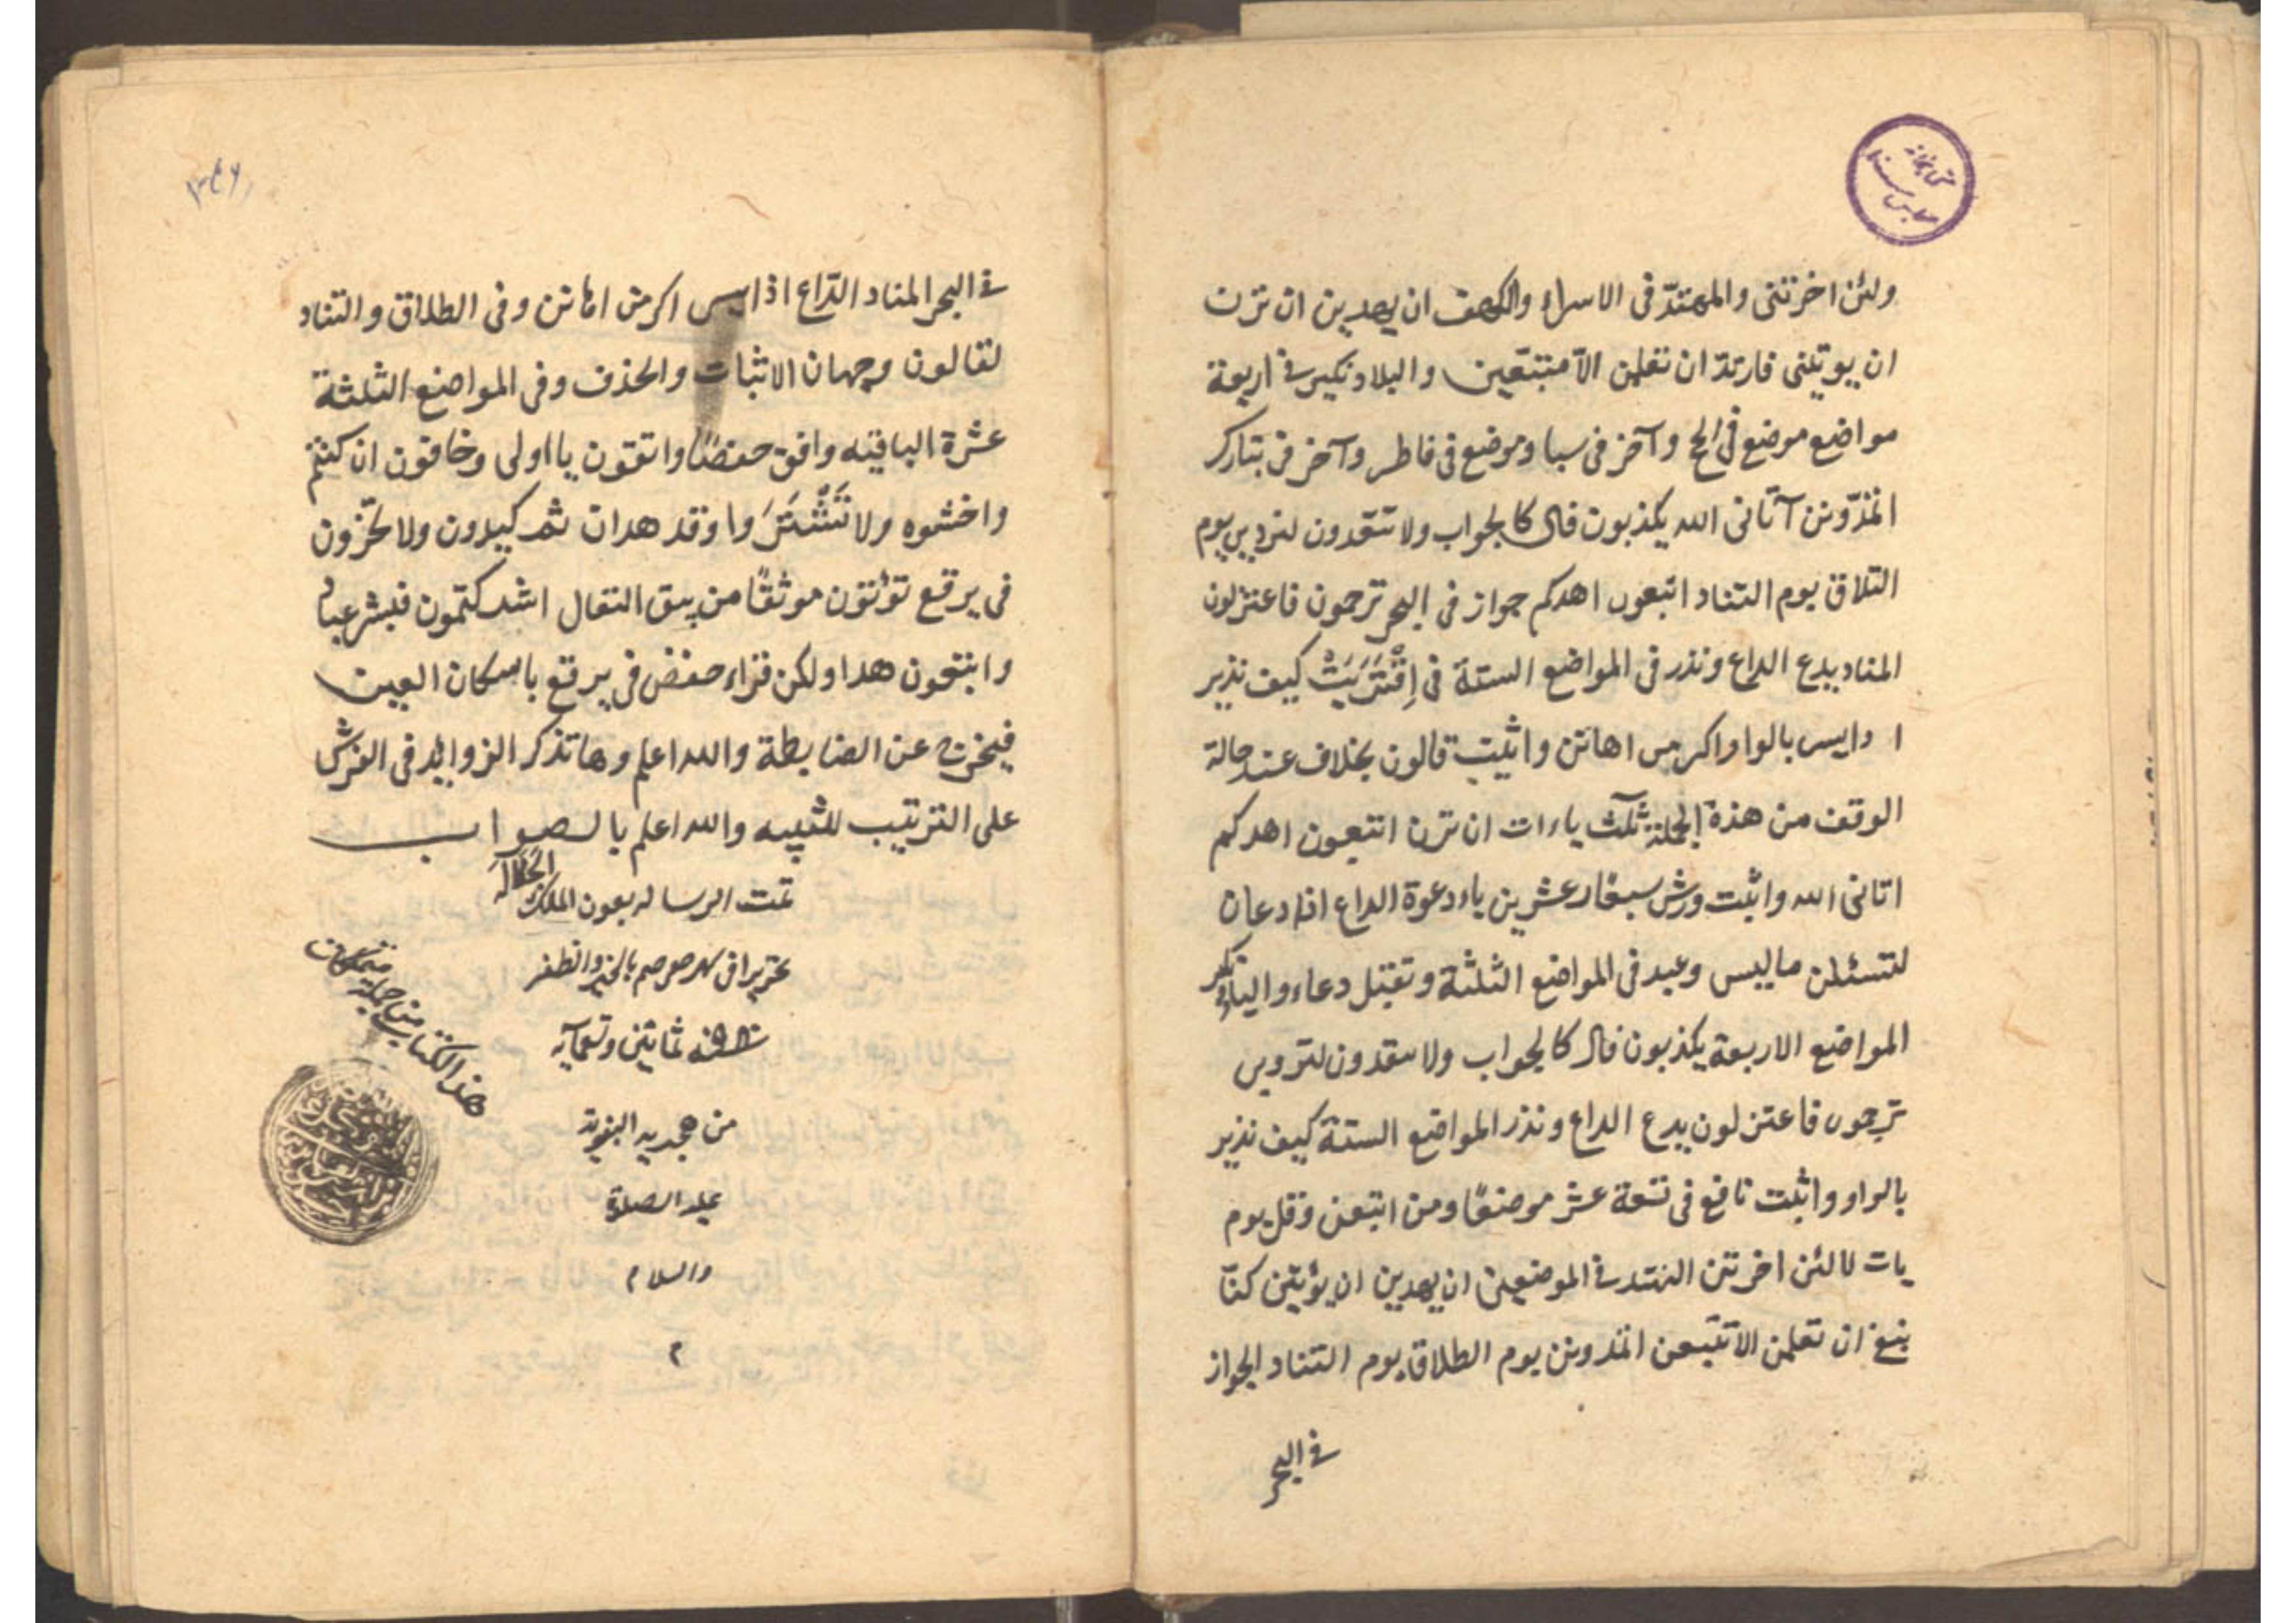 ولئن اخرتنى والمهتد فى الاسراء والكهف ان يهدين ان ترن
ان يوتنى فارتدّ ان تعلمن الا تتبعن والبلاد نكير فى اربعة
مواضع موضع فى الحج وآخر فى سبا وموضع فى فاطر وآخر فى تبارك
اتمدّونن آتانى الله يكذبون قال كالجواب ولا ينقذون لتردين يوم
التلاق يوم التناد اتبعون اهدكم جواز فى البحر ترجمون فاعتزلون
المناد يدع الداع ونذر فى المواضع الستة فى اِقْتَرَبَتْ كيف نذير
بالواو اكرمن اهانن واثبت قالون بخلاف عنه حالة
الوقف من هذة الجملة ثلث ياءات ان ترن اتبعون اهدكم
اتانى الله واثبت ورش سبعًا وعشرين ياء دعوة الداع اذا دعان
لتسئلن ماليس وعيد فى المواضع الثلثة وتقبل دعاء والباد نكير
المواضع الاربعة يكذبون قال كالجواب ولا ينقذون لتردين
ترجمون فاعتزلون يدع الداع ونذر المواضع الستة كيف نذير
بالواد واثبت نافع فى تسعة عشر موضعًا ومن اتبعن وقل يوم
يات لا لئن اخرتن المهتد فى الموضعين ان يهدين ان يؤتين كنّا
نبغ ان تعلمن الا تتبعن اتمدونن يوم الطلاق يوم التناد الجواز
فى البحر
فى البحر المناد الدّاع اذا يسر اكرمن اهانن وفى الطلاق والتناد
لقالون وجهان الاثبات والحذف وفى المواضع الثلثة
عشرة الباقيه وافق حفصًا واتقون يا اولى وخافون ان كنتم
واخشوه ولا تَشْتَرَوا وقد هدان ثم كيدون ولا تخزون
فى يرتع تؤتون موثقًا من يتق المتعال اشركتمون فبشر عباد
واتبعون هذا ولكن قراء حفص فى يرتع باسكان العين
فيخرج عن الضابطة والله اعلم وها تذكر الزوايد فى الفرش
على الترتيب للتنبيه والله اعلم بالصواب
تمت الرساله بعون الملك الجلاله
تحريرا فى شهر صفر ختم بالخير والظفر
سنه ثمانين وتسعمآيه
من هجريه النبويّه
عليه الصلوة
والسلام
م
هذا الكتاب من جمله